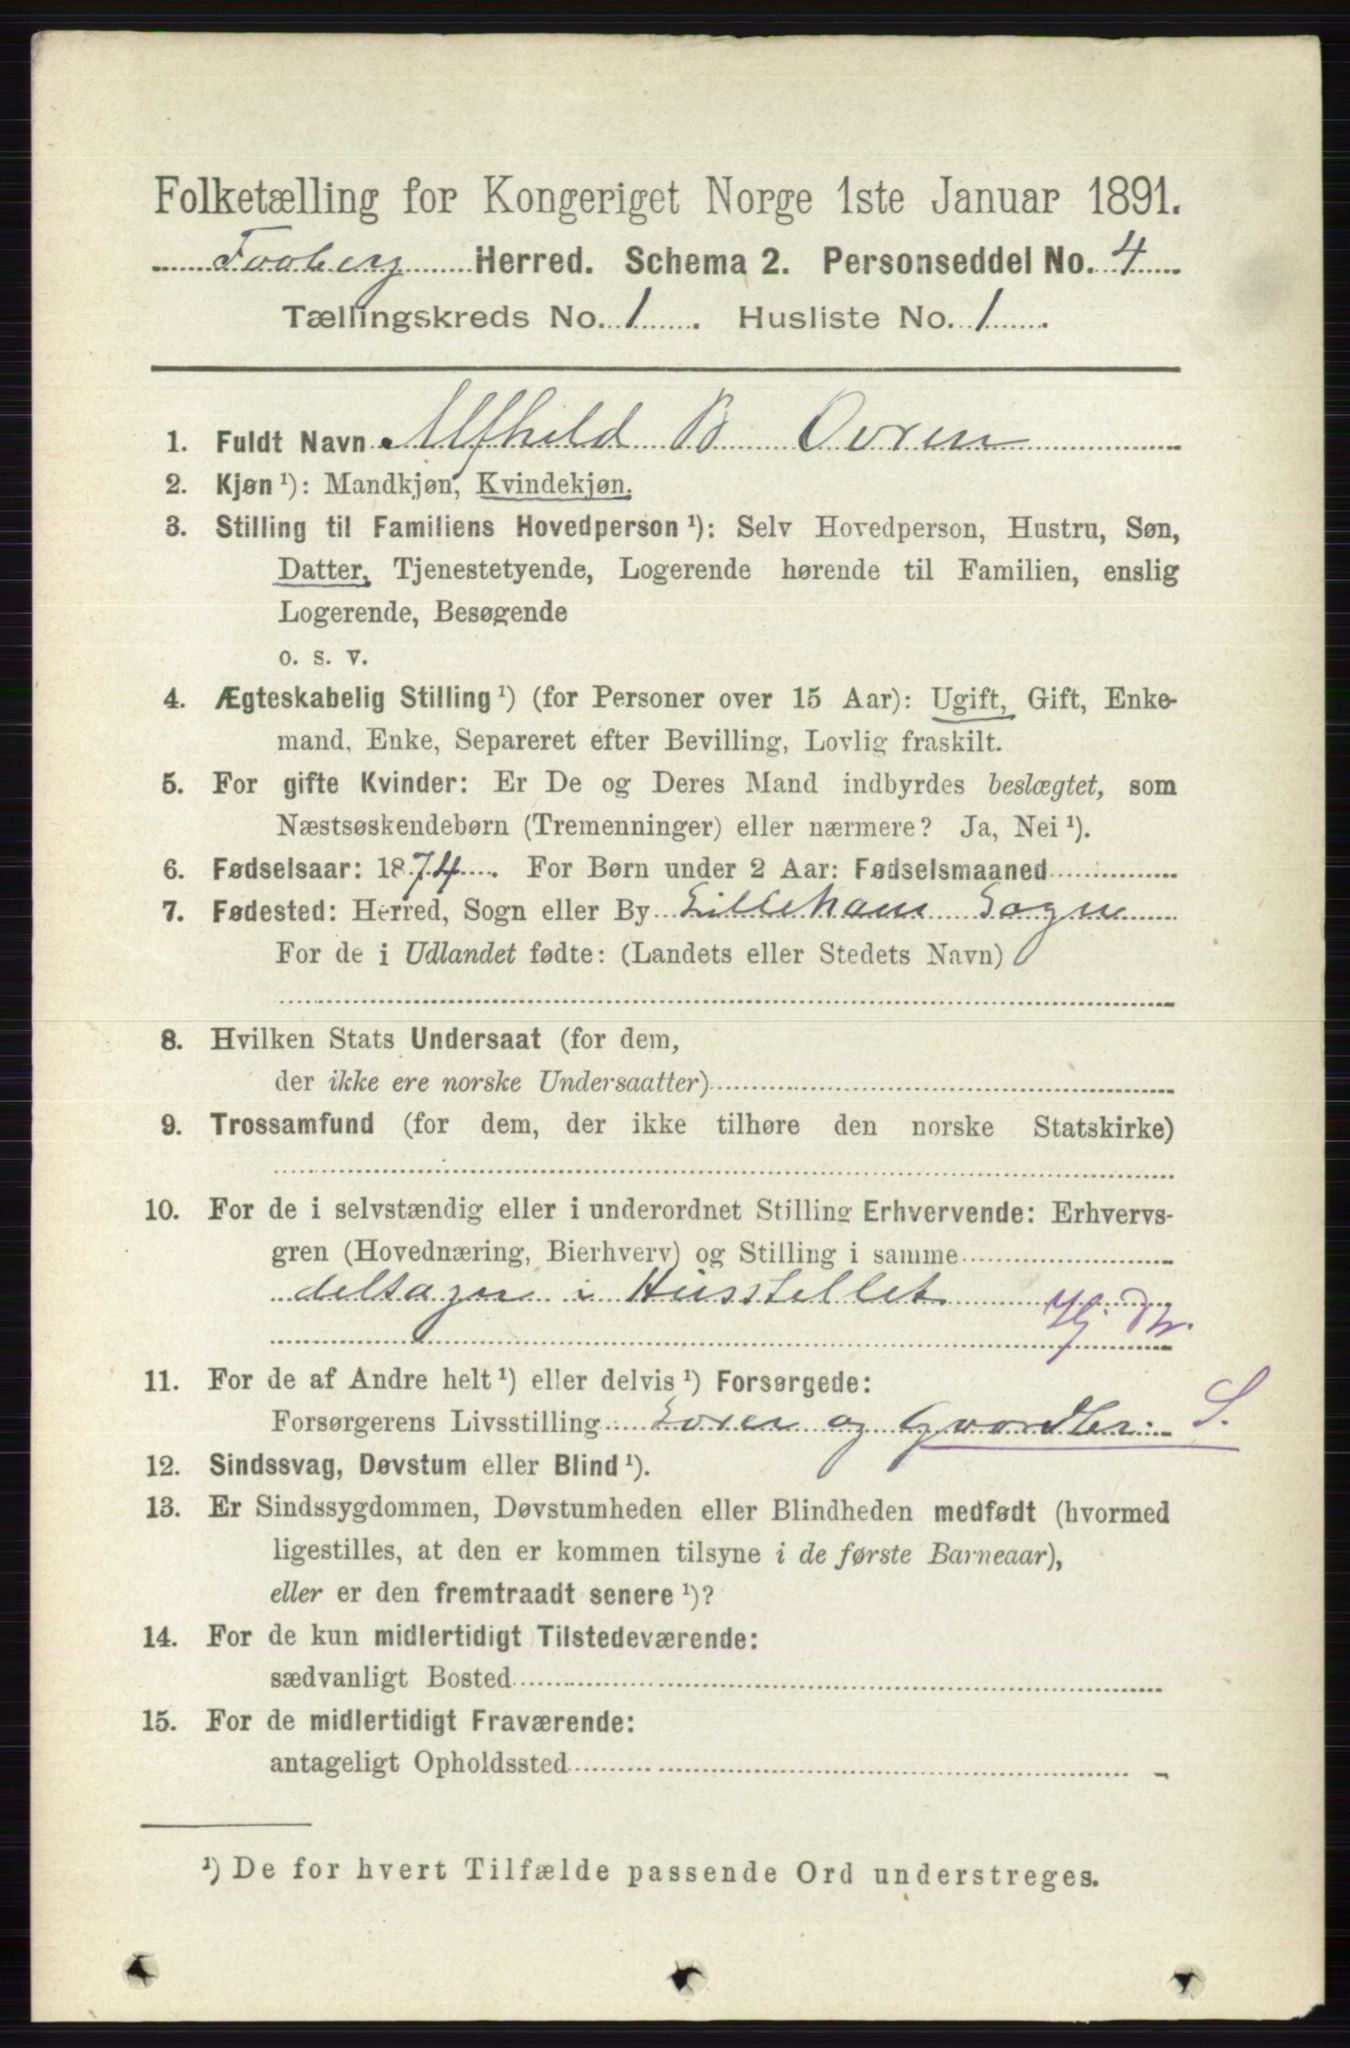 Folketælling for Kongeriget Norge 1ste Januar 1891.
Faaberg Herred. Schema 2. Personseddel No. 4
Tællingskreds No. 1. Husliste No. 1.
1. Fuldt Navn Alfhild B Ovren
2. Kjøn ¹): Mandkjøn, Kvindekjøn.
3. Stilling til Familiens Hovedperson ¹): Selv Hovedperson, Hustru, Søn,
Datter, Tjenestetyende, Logerende hørende til Familien, enslig
Logerende, Besøgende
o. s. v.
4. Ægteskabelig Stilling ¹) (for Personer over 15 Aar): Ugift, Gift, Enke-
mand, Enke, Separeret efter Bevilling, Lovlig fraskilt.
5. For gifte Kvinder: Er De og Deres Mand indbyrdes beslægtet, som
Næstsøskendebørn (Tremenninger) eller nærmere? Ja, Nei ¹).
6. Fødselsaar: 1874. For Børn under 2 Aar: Fødselsmaaned
7. Fødested: Herred, Sogn eller By Lilleham Sogn
For de i Udlandet fødte: (Landets eller Stedets Navn)
8. Hvilken Stats Undersaat (for dem,
der ikke ere norske Undersaatter)
9. Trossamfund (for dem, der ikke tilhøre den norske Statskirke)
10. For de i selvstændig eller i underordnet Stilling Erhvervende: Erhvervs-
gren (Hovednæring, Bierhverv) og Stilling i samme
deltager i Husstellet
11. For de af Andre helt ¹) eller delvis ¹) Forsørgede:
Forsørgerens Livsstilling og Gaardbr: S.
12. Sindssvag, Døvstum eller Blind ¹).
13. Er Sindssygdommen, Døvstumheden eller Blindheden medfødt (hvormed
ligestilles, at den er kommen tilsyne i de første Barneaar),
eller er den fremtraadt senere ¹)?
14. For de kun midlertidigt Tilstedeværende:
sædvanligt Bosted
15. For de midlertidigt Fraværende:
antageligt Opholdssted
¹) De for hvert Tilfælde passende Ord understreges.